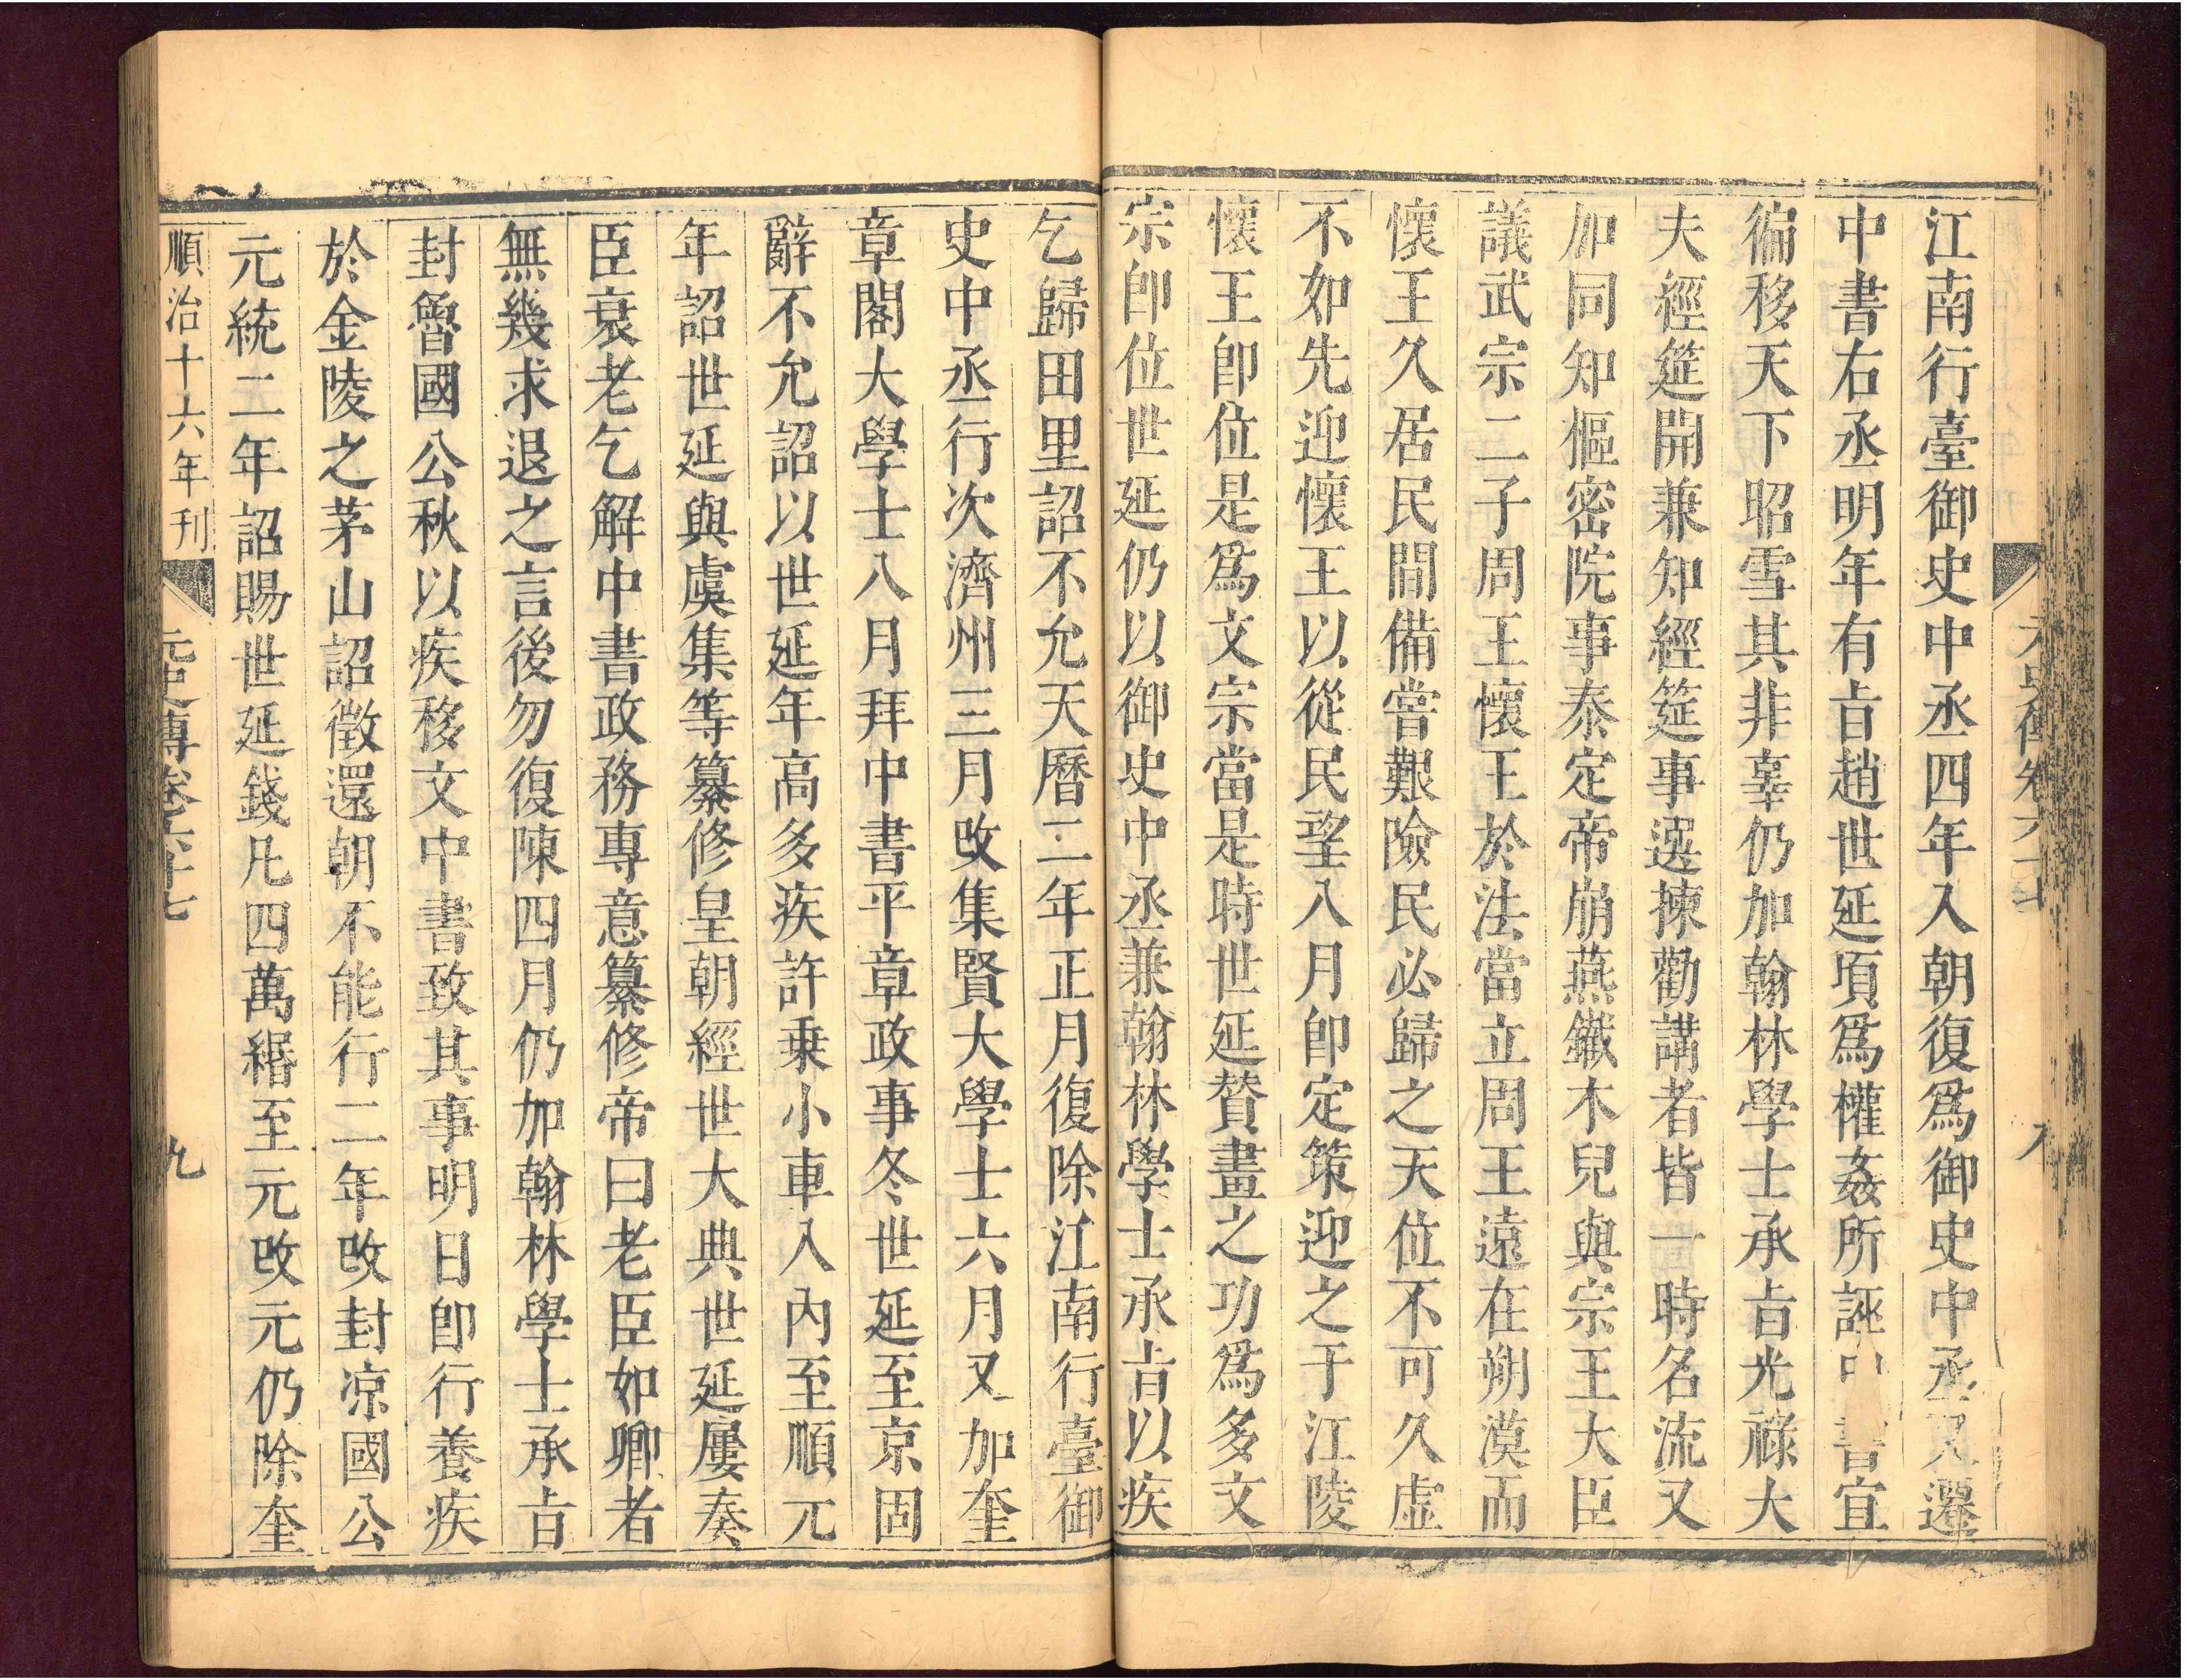 江南行臺御史中丞四年入朝復爲御史中丞又遷
中書右丞明年有㫖趙世延頃爲權姦所誣中書宜
徧移天下昭雪其非辜仍加翰林學士承㫖光祿大
夫經筵開兼知經筵事選揀勸講者皆一時名流又
加同知樞密院事泰定帝崩燕鐵木兒與宗王大臣
議武宗二子周王懷王於法當立周王遠在朔漠而
懷王久居民間備嘗艱險民必歸之天位不可久虛
不如先迎懷王以從民望八月卽定策迎之于江陵
懷王卽位是爲文宗當是時世延贊畫之功爲多文
宗卽位世延仍以御史中丞兼翰林學士承㫖以疾
乞歸田里詔不允天曆二年正月復除江南行臺御
史中丞行次濟州三月改集賢大學士六月又加奎
章閣大學士八月拜中書平章政事冬世延至京固
辭不允詔以世延年高多疾許乗小車入內至順元
年詔世延與虞集等纂修皇朝經世大典世延屢奏
臣衰老乞解中書政務專意纂修帝曰老臣如卿者
無幾求退之言後勿復陳四月仍加翰林學士承㫖
封魯國公秋以疾移文中書致其事明日卽行養疾
於金陵之茅山詔徵還朝不能行二年改封凉國公
元統二年詔賜世延錢凡四萬緡至元改元仍除奎
順治十六年刊
元史傳卷六十七
九